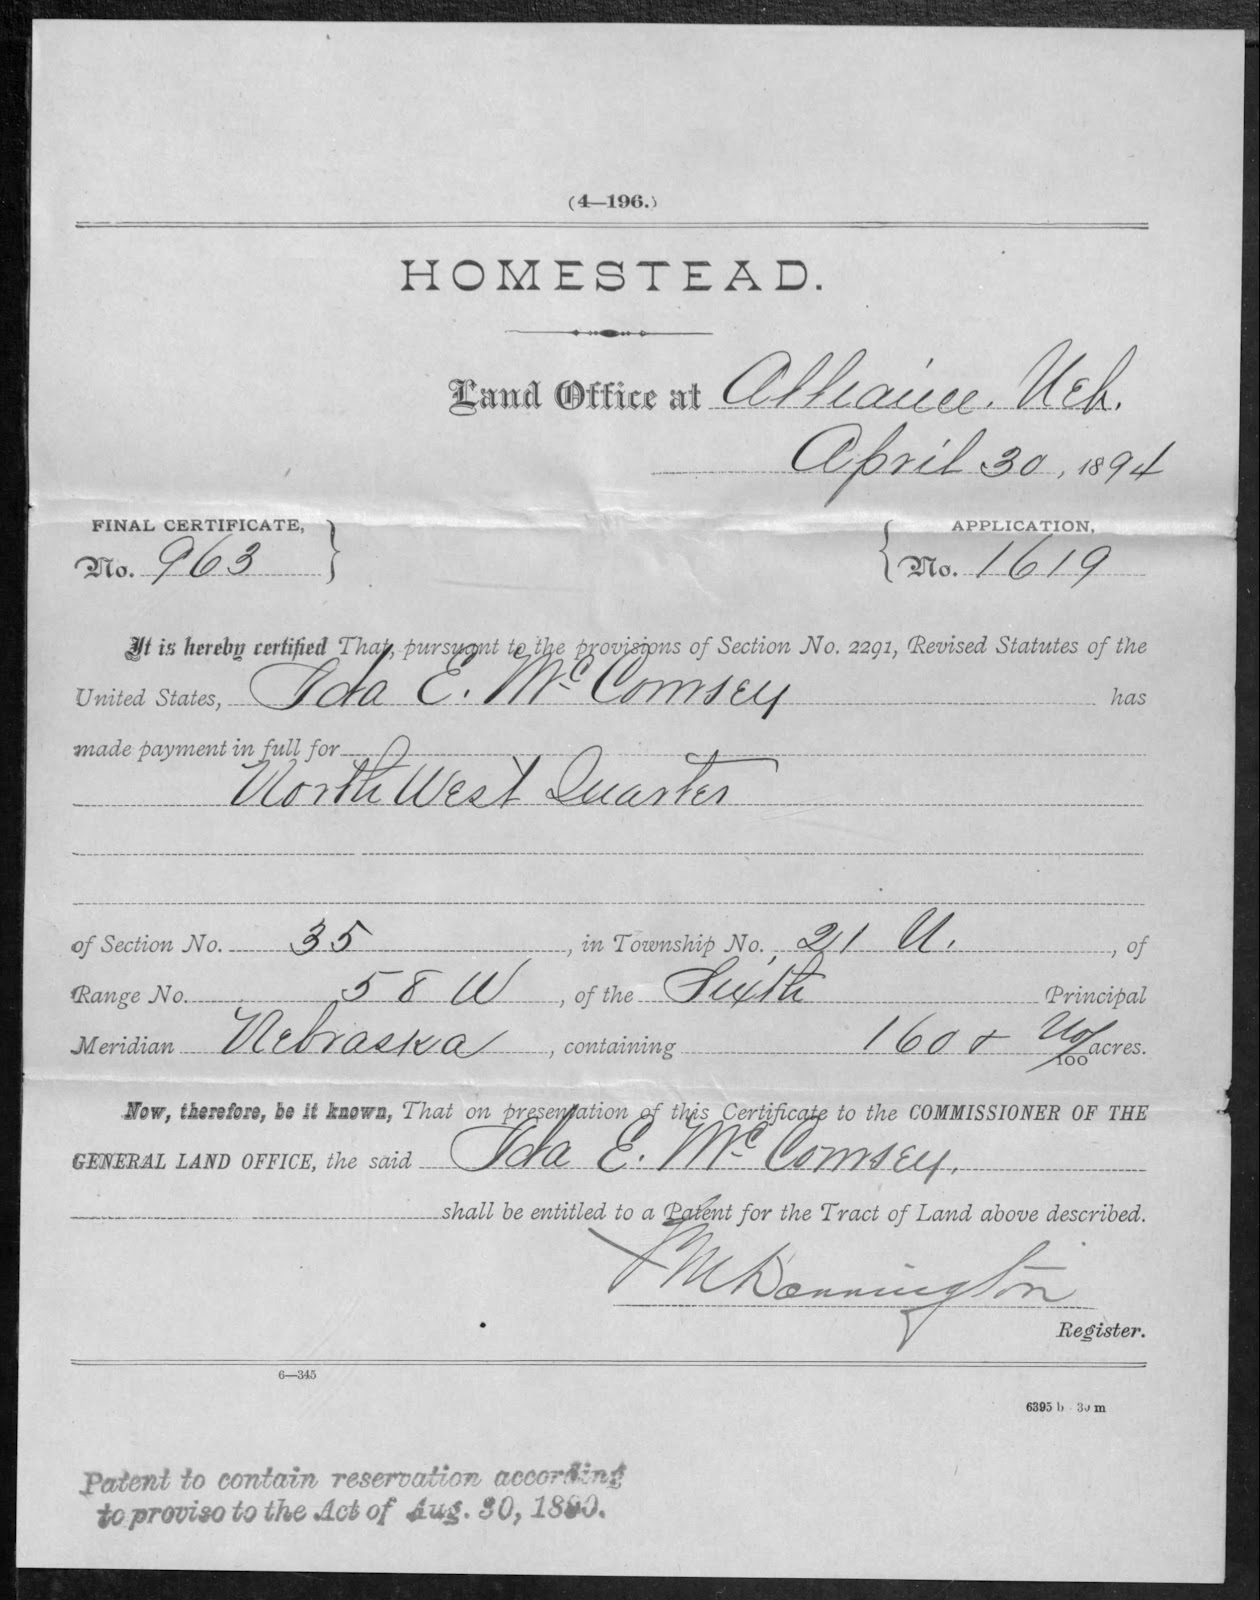 (4—196.)
HOMESTEAD.
Land Office at Alliance. Neb.
April 30, 1894
FINAL CERTIFICATE,
No. 963
APPLICATION,
No. 1619
It is hereby certified That, pursuant to the provisions of Section No. 2291, Revised Statutes of the
United States, Ida E. McComsey has
made payment in full for
North West Quarter
of Section No. 35, in Township No. 21 N., of
Range No. 58 W, of the Sixth Principal
Meridian Nebraska, containing 160 & No/100 acres.
Now, therefore, be it known, That on presentation of this Certificate to the COMMISSIONER OF THE
GENERAL LAND OFFICE, the said Ida E. McComsey.
shall be entitled to a Patent for the Tract of Land above described.
Dorrington
Register.
6—345
6395 b 30 m
Patent to contain reservation according
to proviso to the Act of Aug. 30, 1890.